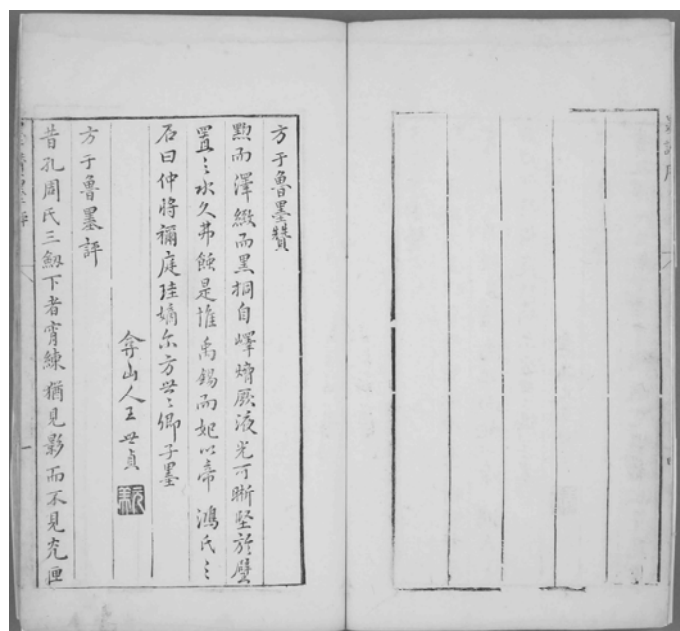 方于魯墨贊
黝而澤緻而黑桐自嶧燔厥液光可晰堅於壁
置之水久弗蝕是惟禹錫而妃以帝鴻氏之
石曰仲將禰庭珪嫡尒方世世卿子墨
弇山人王世貞
方于魯墨評
昔孔周氏三劒下者宵練猶見影而不見光匣